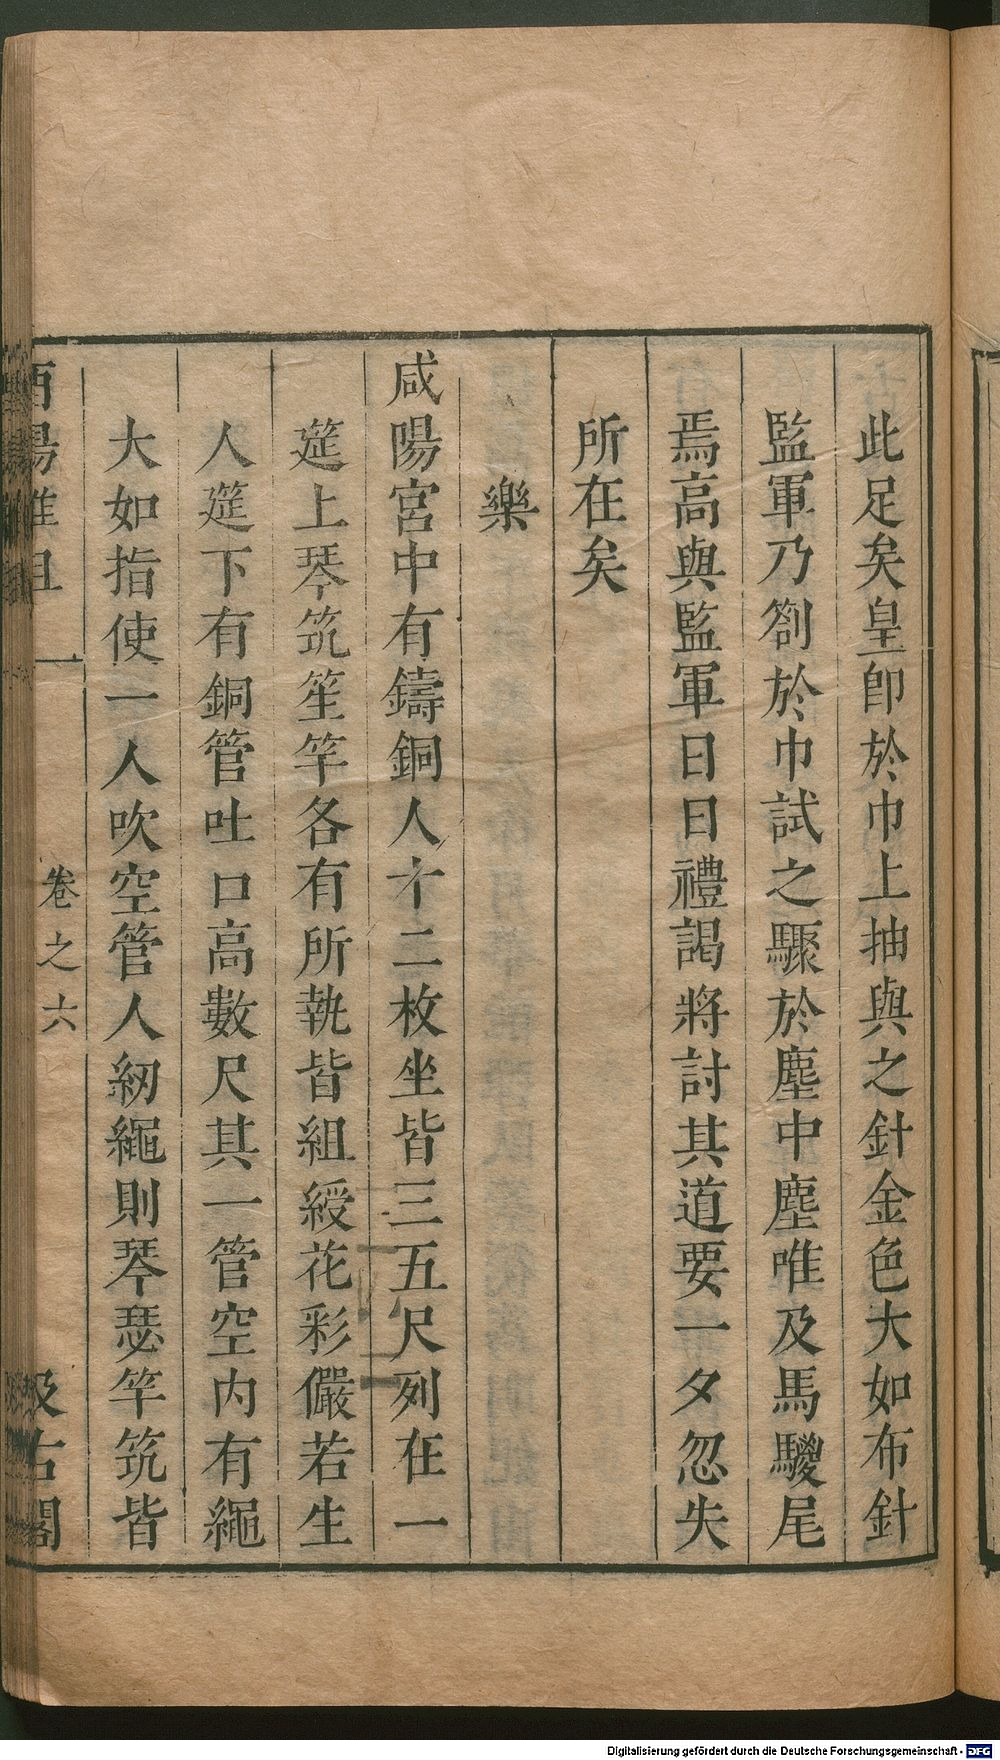 此足矣皇卽於巾上抽與之針金色大如布針
監軍乃劄於巾試之驟於塵中塵唯及馬騣尾
焉高與監軍日日禮謁將討其道要一夕忽失
所在矣
樂
咸陽宮中有鑄銅人十二枚坐皆三五尺列在一
筵上琴筑笙竽各有所執皆組綬花彩儼若生
人筵下有銅管吐口高數尺其一管空内有繩
大如指使一人吹空管人紉繩則琴瑟竽筑皆
酉陽雜俎 卷之六 汲古閣
Digitalisierung gefördert durch die Deutsche Forschungsgemeinschaft - DFG